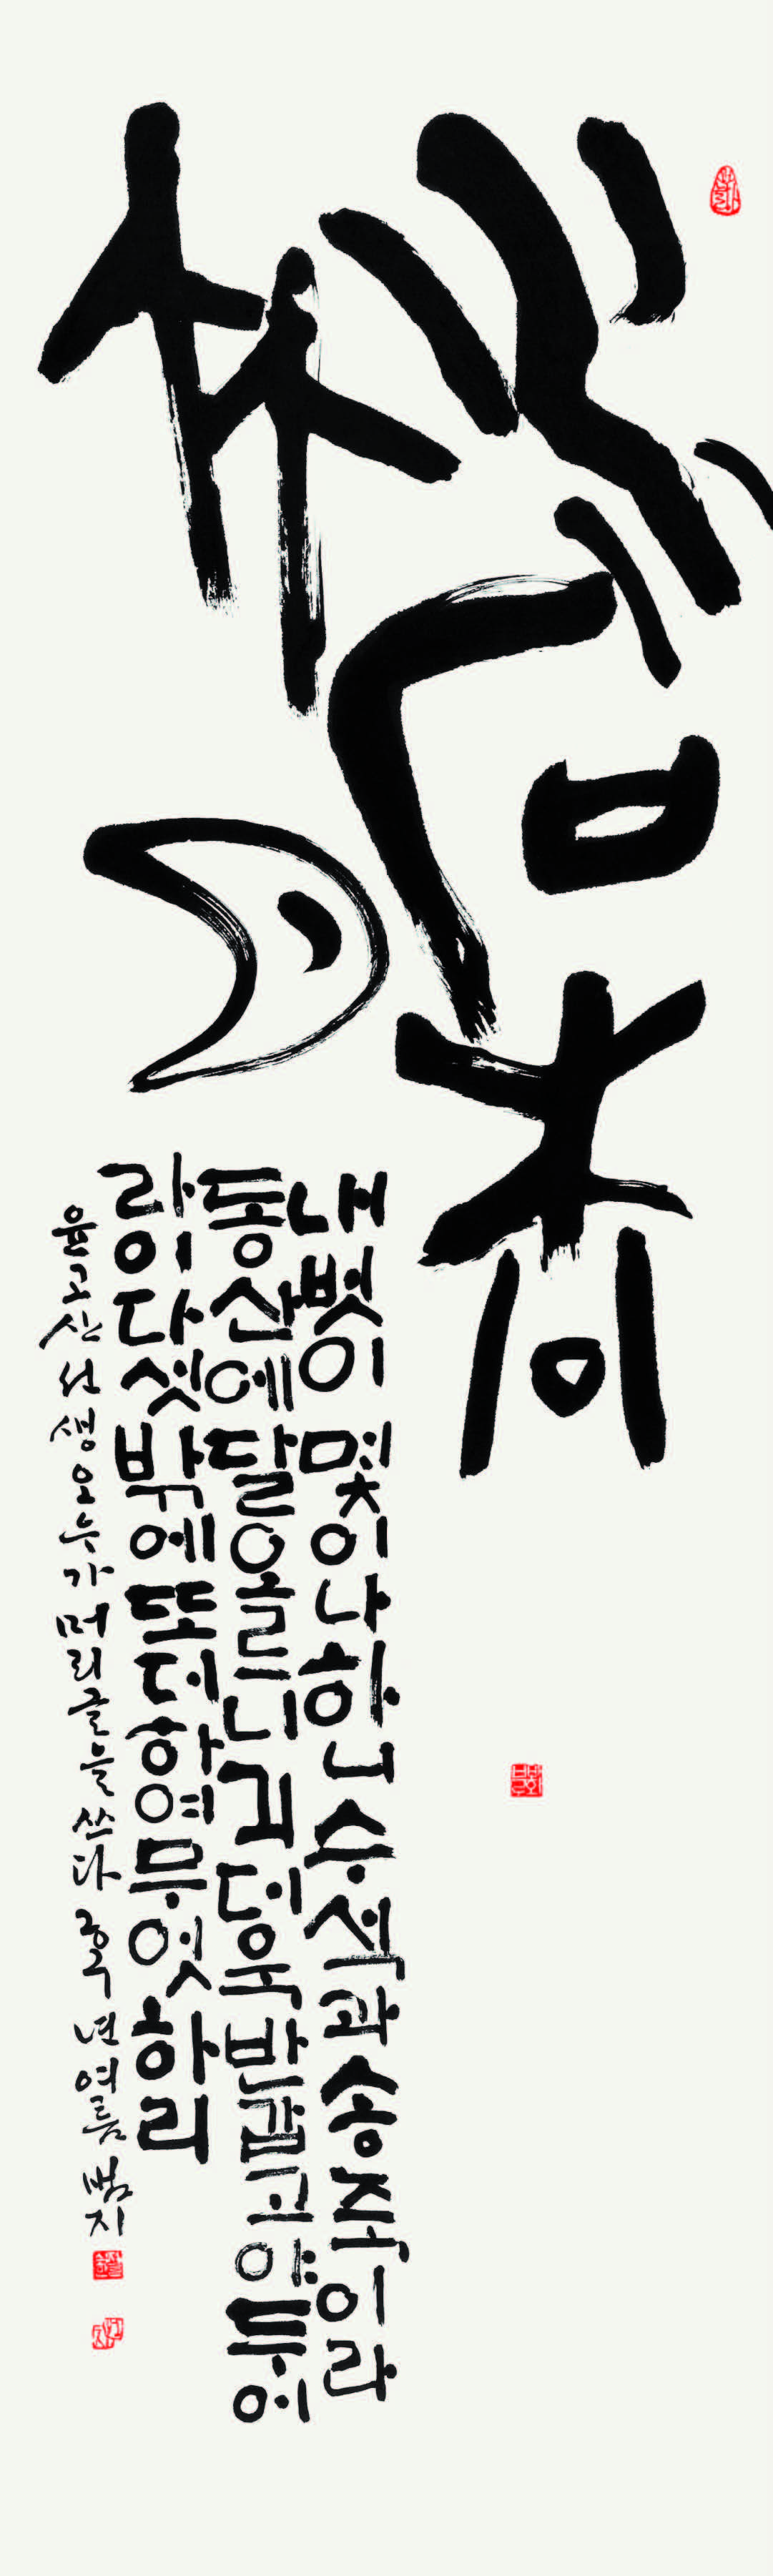 水石松
竹月
내벗이 몇이나 하니 수석과 송죽이라
동산에 달 오르니 긔 더욱 반갑고야 두어
라 이 다섯 밖에 또 더하여 무엇하리
윤고산 선생 오우가 머리글을 쓰다 년 여름 범지